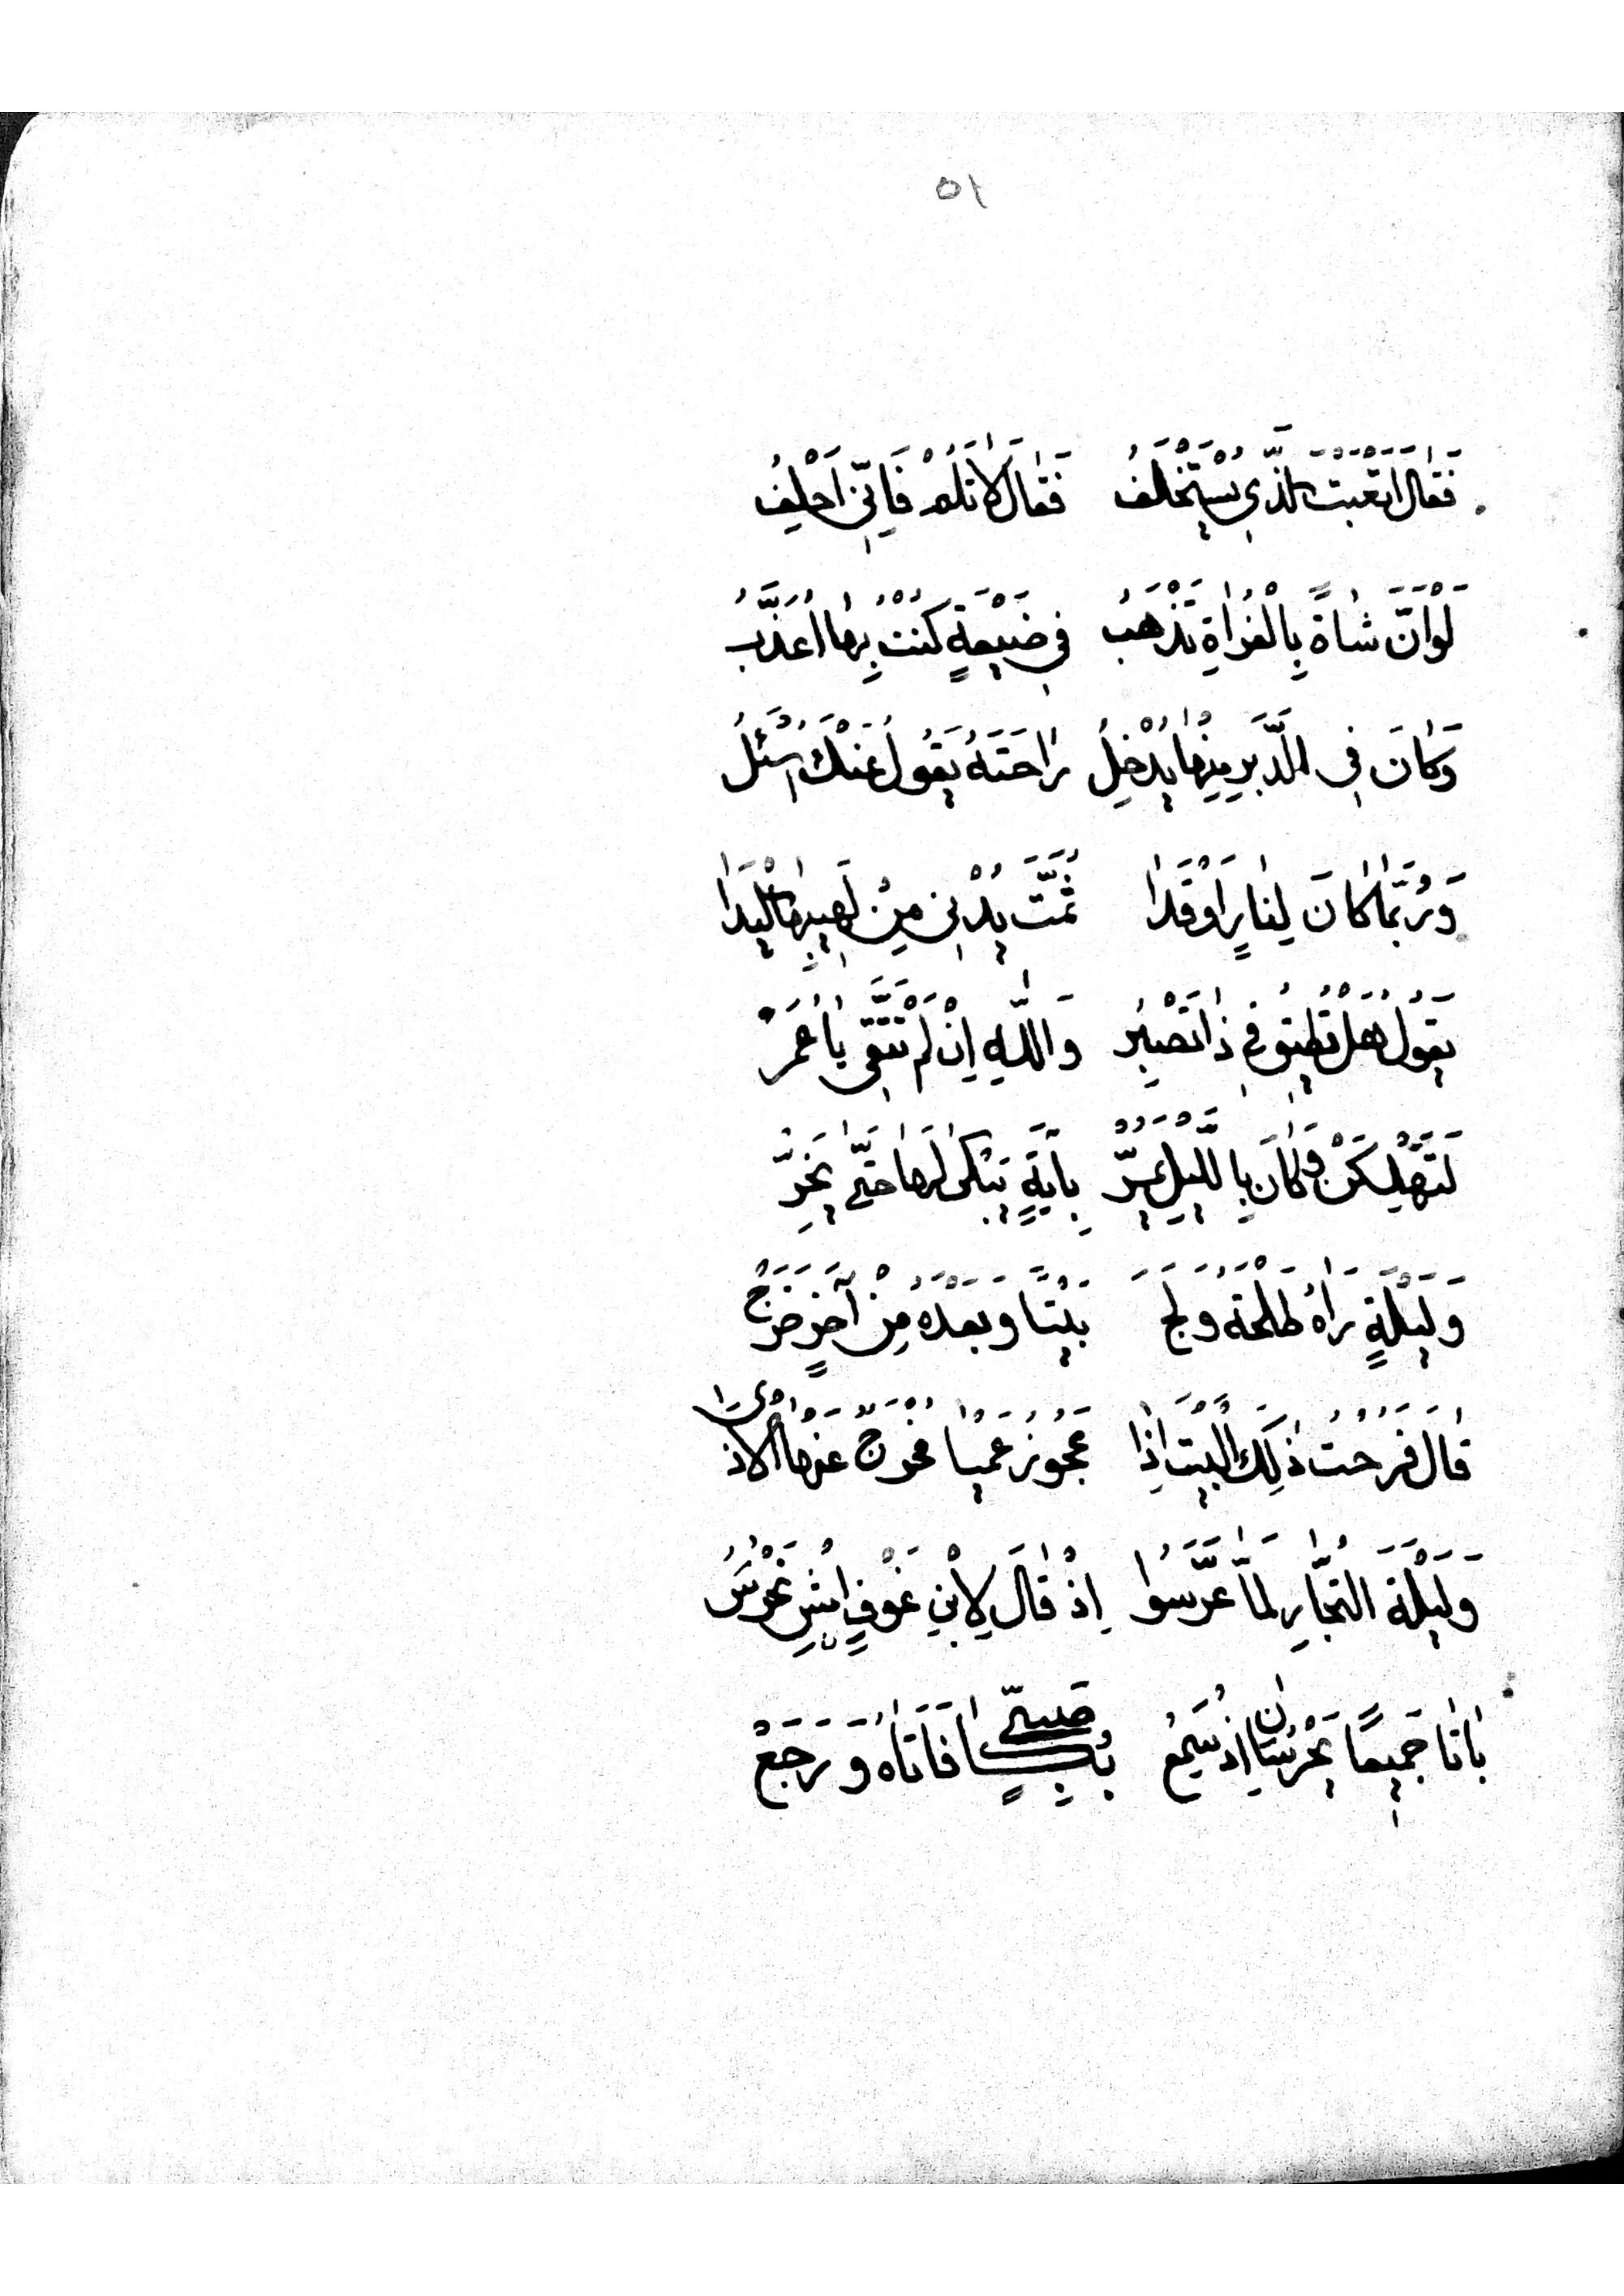 ٥١
فَقَالَ اَتْعَبْتَ الَّذِي يُسْتَخْلَفُ فَقَالَ لَا تَلُمْ فَاِنِّي اَحْلِفُ
لَوْ اَنَّ شَاةً بِالْفُرَاةِ تَذْهَبُ فِي ضَيْعَةٍ كُنْتُ بِهَا اُعَذَّبُ
وَكَانَ فِي الدَّبَرِ مِنْهَا يُدْخِلُ رَاحَتَهُ يَقُولُ عَنْكَ اُسْئَلُ
وَرُبَّمَا كَانَ لِنَارٍ اَوْقَدَا ثُمَّتَ يُدْنِي مِنْ لَهِيبِهَا الْيَدَا
يَقُولُ هَلْ تُطِيقُ فِي ذَا تَصْبِرُ وَاللّٰهِ اِنْ لَمْ تَتَّقِي يَا عُمَرُ
لَتَهْلِكَنْ وَكَانَ بِاللَّيْلِ يَمُرّْ بِآيَةٍ يَبْكِي لَهَا حَتَّى يَخِرّْ
وَلَيْلَةٍ رَاهُ طَلْحَةُ وَلَجَ بَيْتًا وَبَعْدَهُ مِنْ آخَرٍ خَرَجْ
قَالَ فَرُحْتُ ذٰلِكَ الْبَيْتَ اِذَا عَجُوزُ عَمْيَا مُخْرَجٌ عَنْهَا الْاَذَى
وَلَيْلَةَ التُّجَّارِ لَمَّا عَرَّسُوا اِذْ قَالَ لِابْنِ عَوْفٍ امْشِ نَحْرُسُ
بَاتَا جَمِيعًا يَحْرُسَانِ اِذْ سَمِعْ بُكَا صَبِيٍّ فَاَتَاهُ وَرَجَعْ